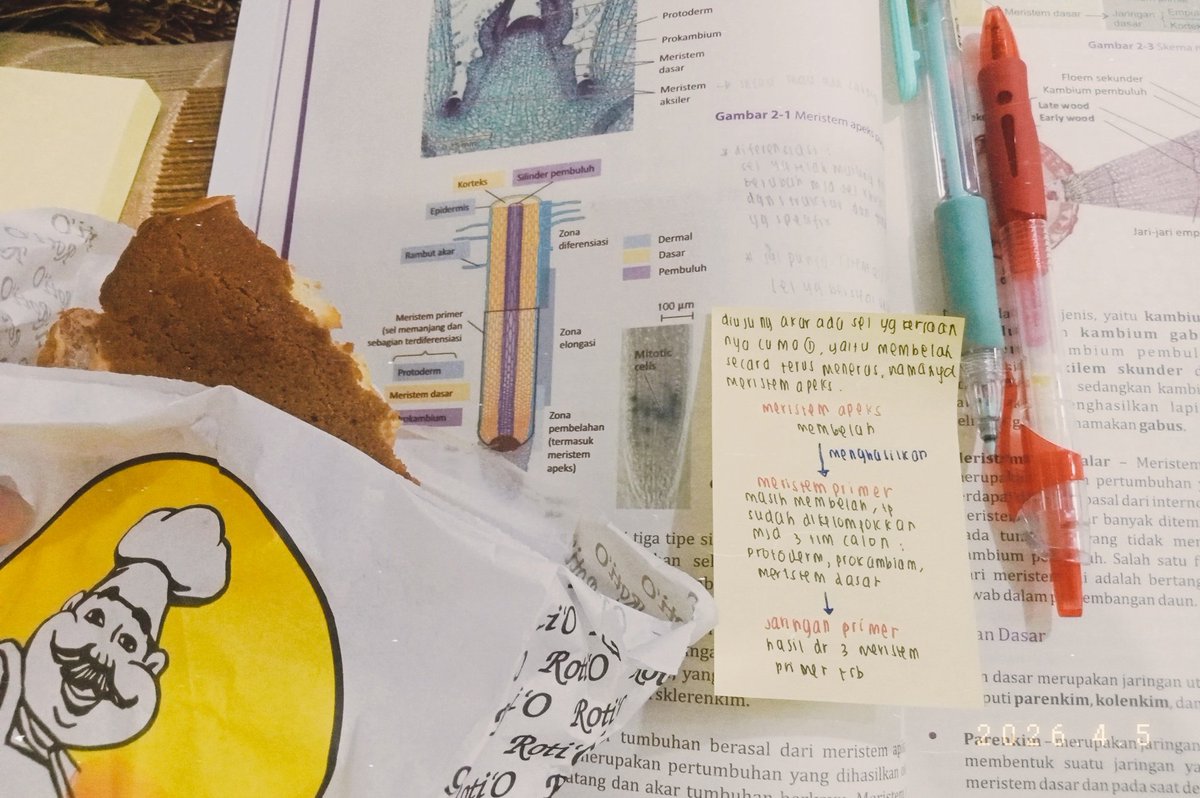 Protoderm
Prokambium
Meristem
dasar
Meristem
aksiler
Gambar 2-1 Meristem apeks
* diferensiasi :
Korteks
Silinder pembuluh
Epidermis
Rambut akar
Zona
diferensiasi
Dermal
Dasar
Pembuluh
Meristem primer
(sel memanjang dan
sebagian terdiferensiasi)
Protoderm
Meristem dasar
Prokambium
Zona
elongasi
Zona
pembelahan
(termasuk
meristem
apeks)
100 µm
Mitotic
cells
diujung akar ada sel yg kerjaan
nya cuma ①, yaitu membelah
secara terus menerus, namanya
meristem apeks.
meristem apeks
membelah
menghasilkan
meristem primer
masih membelah, tp
sudah dikelompokkan
mja 3 tim calon :
protoderm, prokambium,
meristem dasar
Jaringan primer
hasil dr 3 meristem
primer tsb
Meristem dasar
Jaringan
dasar
Gambar 2-3 Skema
Floem sekunder
Kambium pembuluh
Late wood
Early wood
Jari-jari emp
jenis, yaitu kambiu
kambium gab
mbium pembul
xilem skunder d
sedangkan kambi
enghasilkan lapi
namakan gabus.
Meristem alar – Meristem
merupakan pertumbuhan
erdapa basal dari intern
meristem ar banyak ditem
pada tun rang tidak mer
ambium p uh. Salah satu f
ari meriste i adalah bertang
wab dalam p embangan daun.
an Dasar
n dasar merupakan jaringan ut
puti parenkim, kolenkim, dan
• Parenkim – merupakan jaringan
membentuk suatu jaringan ya
meristem dasar dan pada saat de
tiga tipe si
yang
sklerenkim.
tumbuhan berasal dari meristem api
merupakan pertumbuhan yang dihasilkan
atang dan akar tumbuhan
Roti'O
Roti'O
Roti'O
Roti'O
2026 4 5